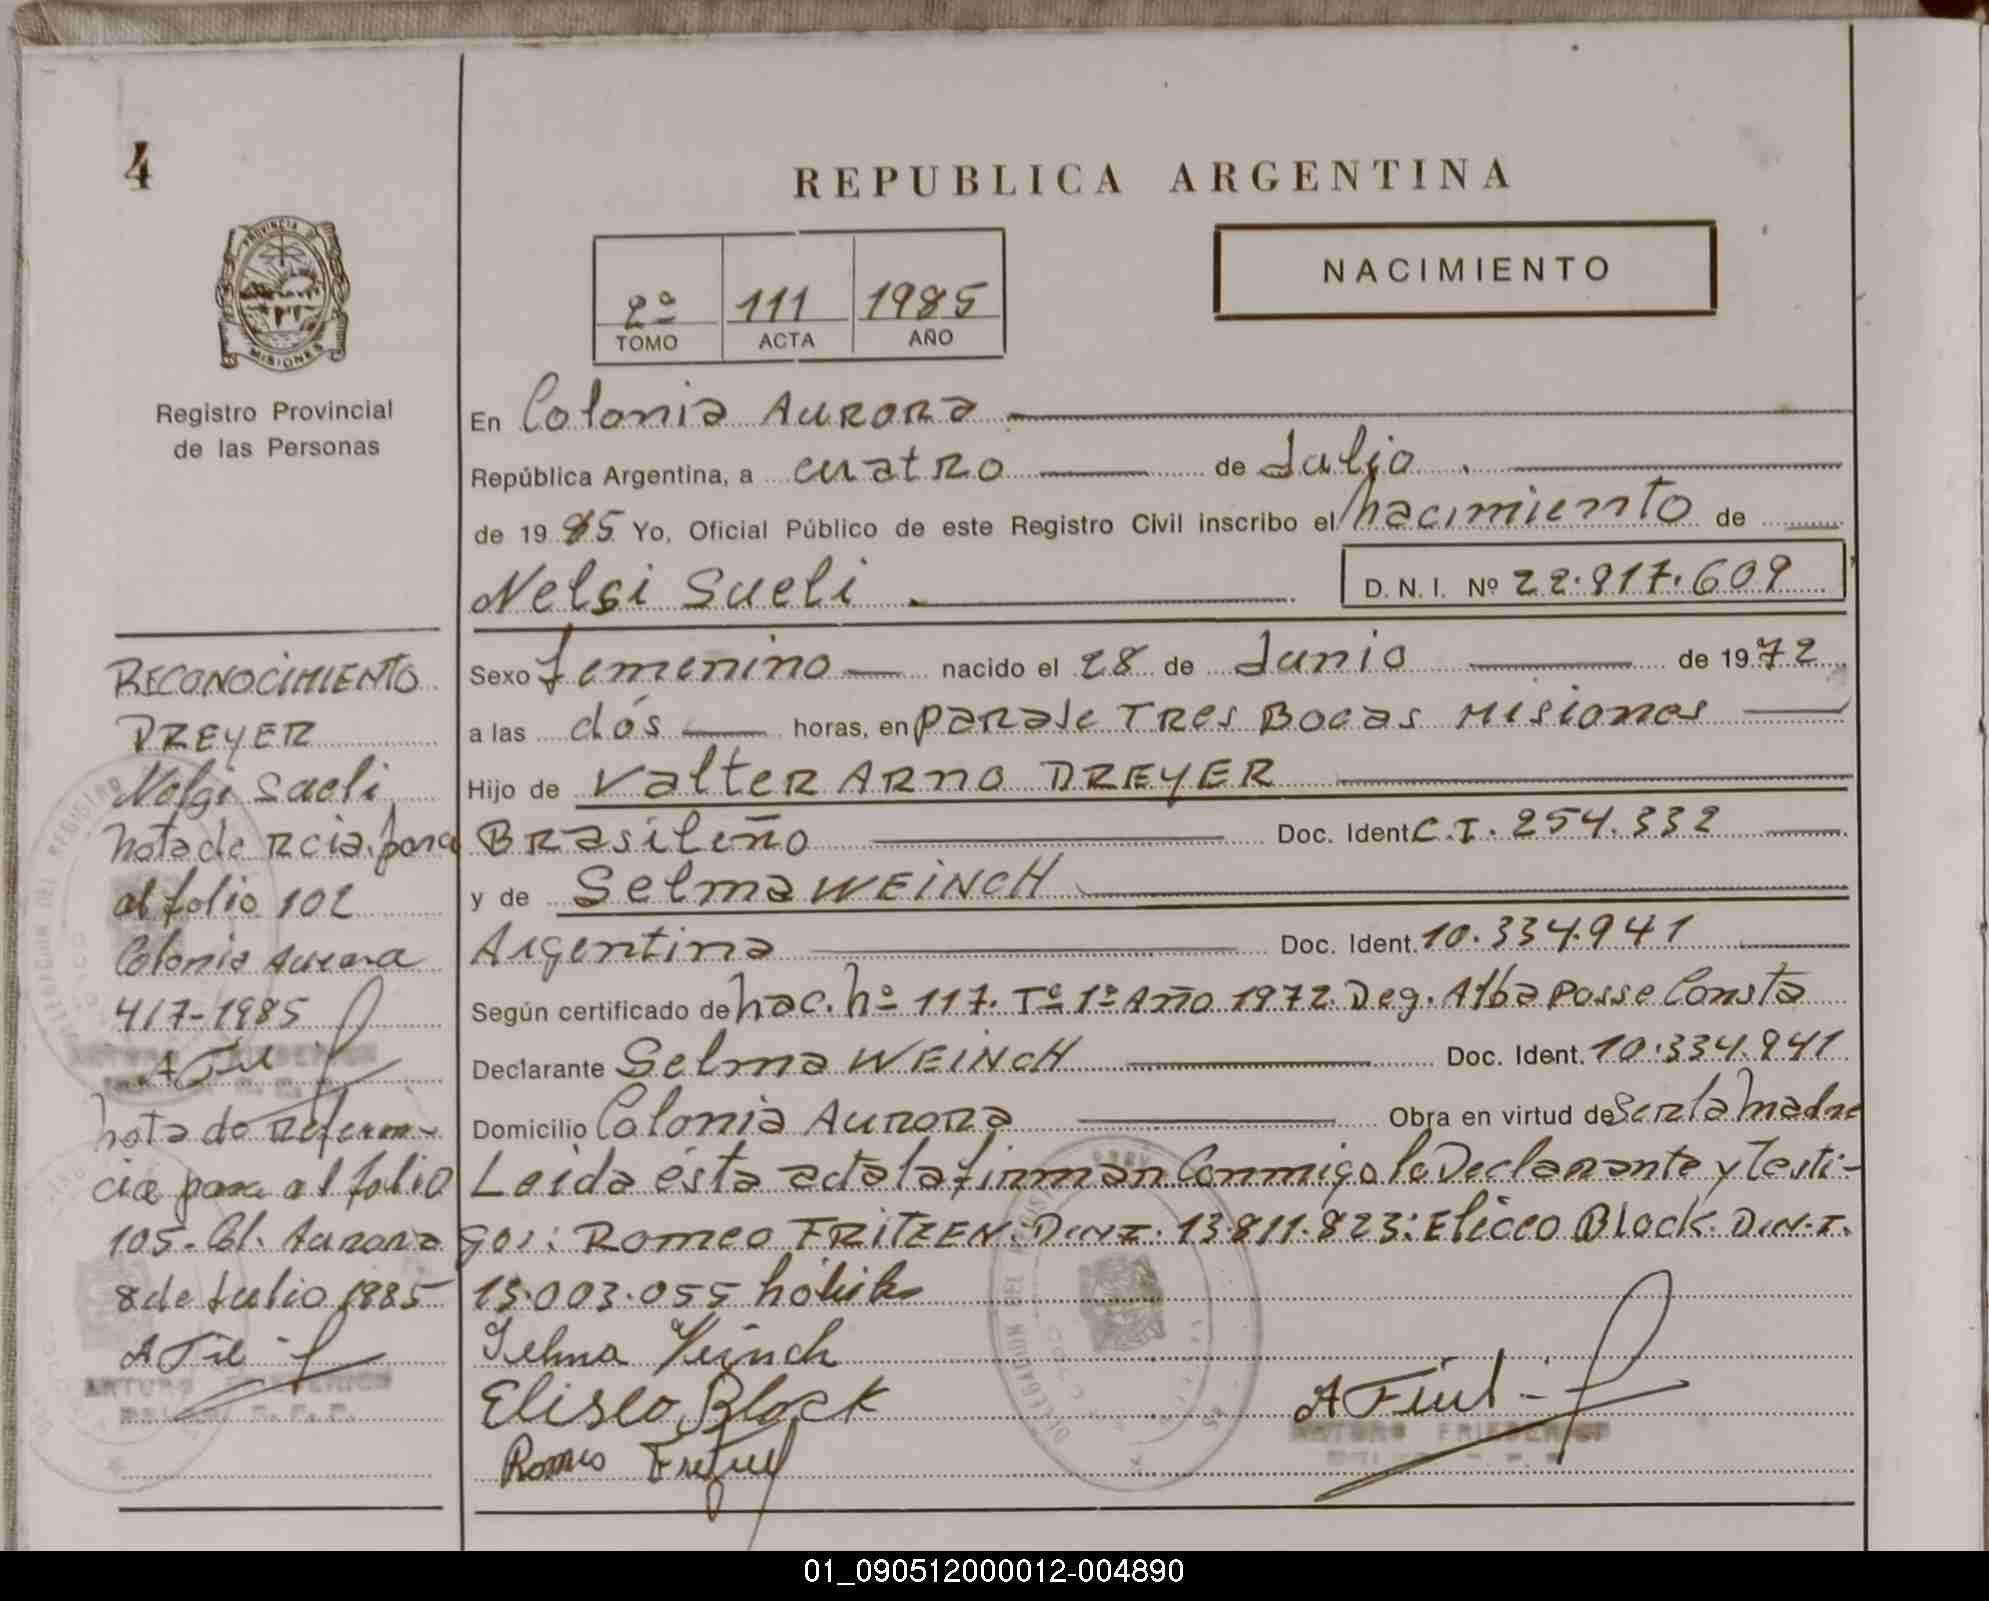 4
PROVINCIA DE
MISIONES
Registro Provincial
de las Personas
RECONOCIMIENTO
DREYER
Nelgi Sueli
Nota de Rcia. para
al folio 102
Colonia Aurora
4/7-1985
Nota de Referen-
cia para al folio
105-Col. Aurora
8 de Julio 1985
ARTURO FRIEDERICH
REPUBLICA ARGENTINA
NACIMIENTO
2º 111 1985
TOMO ACTA AÑO
En Colonia Aurora
República Argentina, a cuatro de Julio
de 1985 Yo, Oficial Público de este Registro Civil inscribo el Nacimiento de
Nelgi Sueli D. N. I. Nº 22.817.609
Sexo femenino nacido el 28 de Junio de 1972
a las dós horas, en Paraje Tres Bocas Misiones
Hijo de Valter Arno DREYER
Brasileño Doc. Ident C.I. 254.332
y de Selma WEINCH
Argentina Doc. Ident. 10.334.941
Según certificado de Nac. Nº 117. Tº 1º Año 1972. Deg. Alba Posse Consta
Declarante Selma WEINCH Doc. Ident. 10.334.941
Domicilio Colonia Aurora Obra en virtud de Ser la Madre
Leida ésta acta la firman Conmigo la Declarante y Testi-
gos: Romeo FRITZEN. D.N.I. 13.811.823: Eliceo Block. D.N.I.
13.003.055
Selma Weinch
Eliseo Block
Romeo
ARTURO FRIEDERICH
01_090512000012-004890